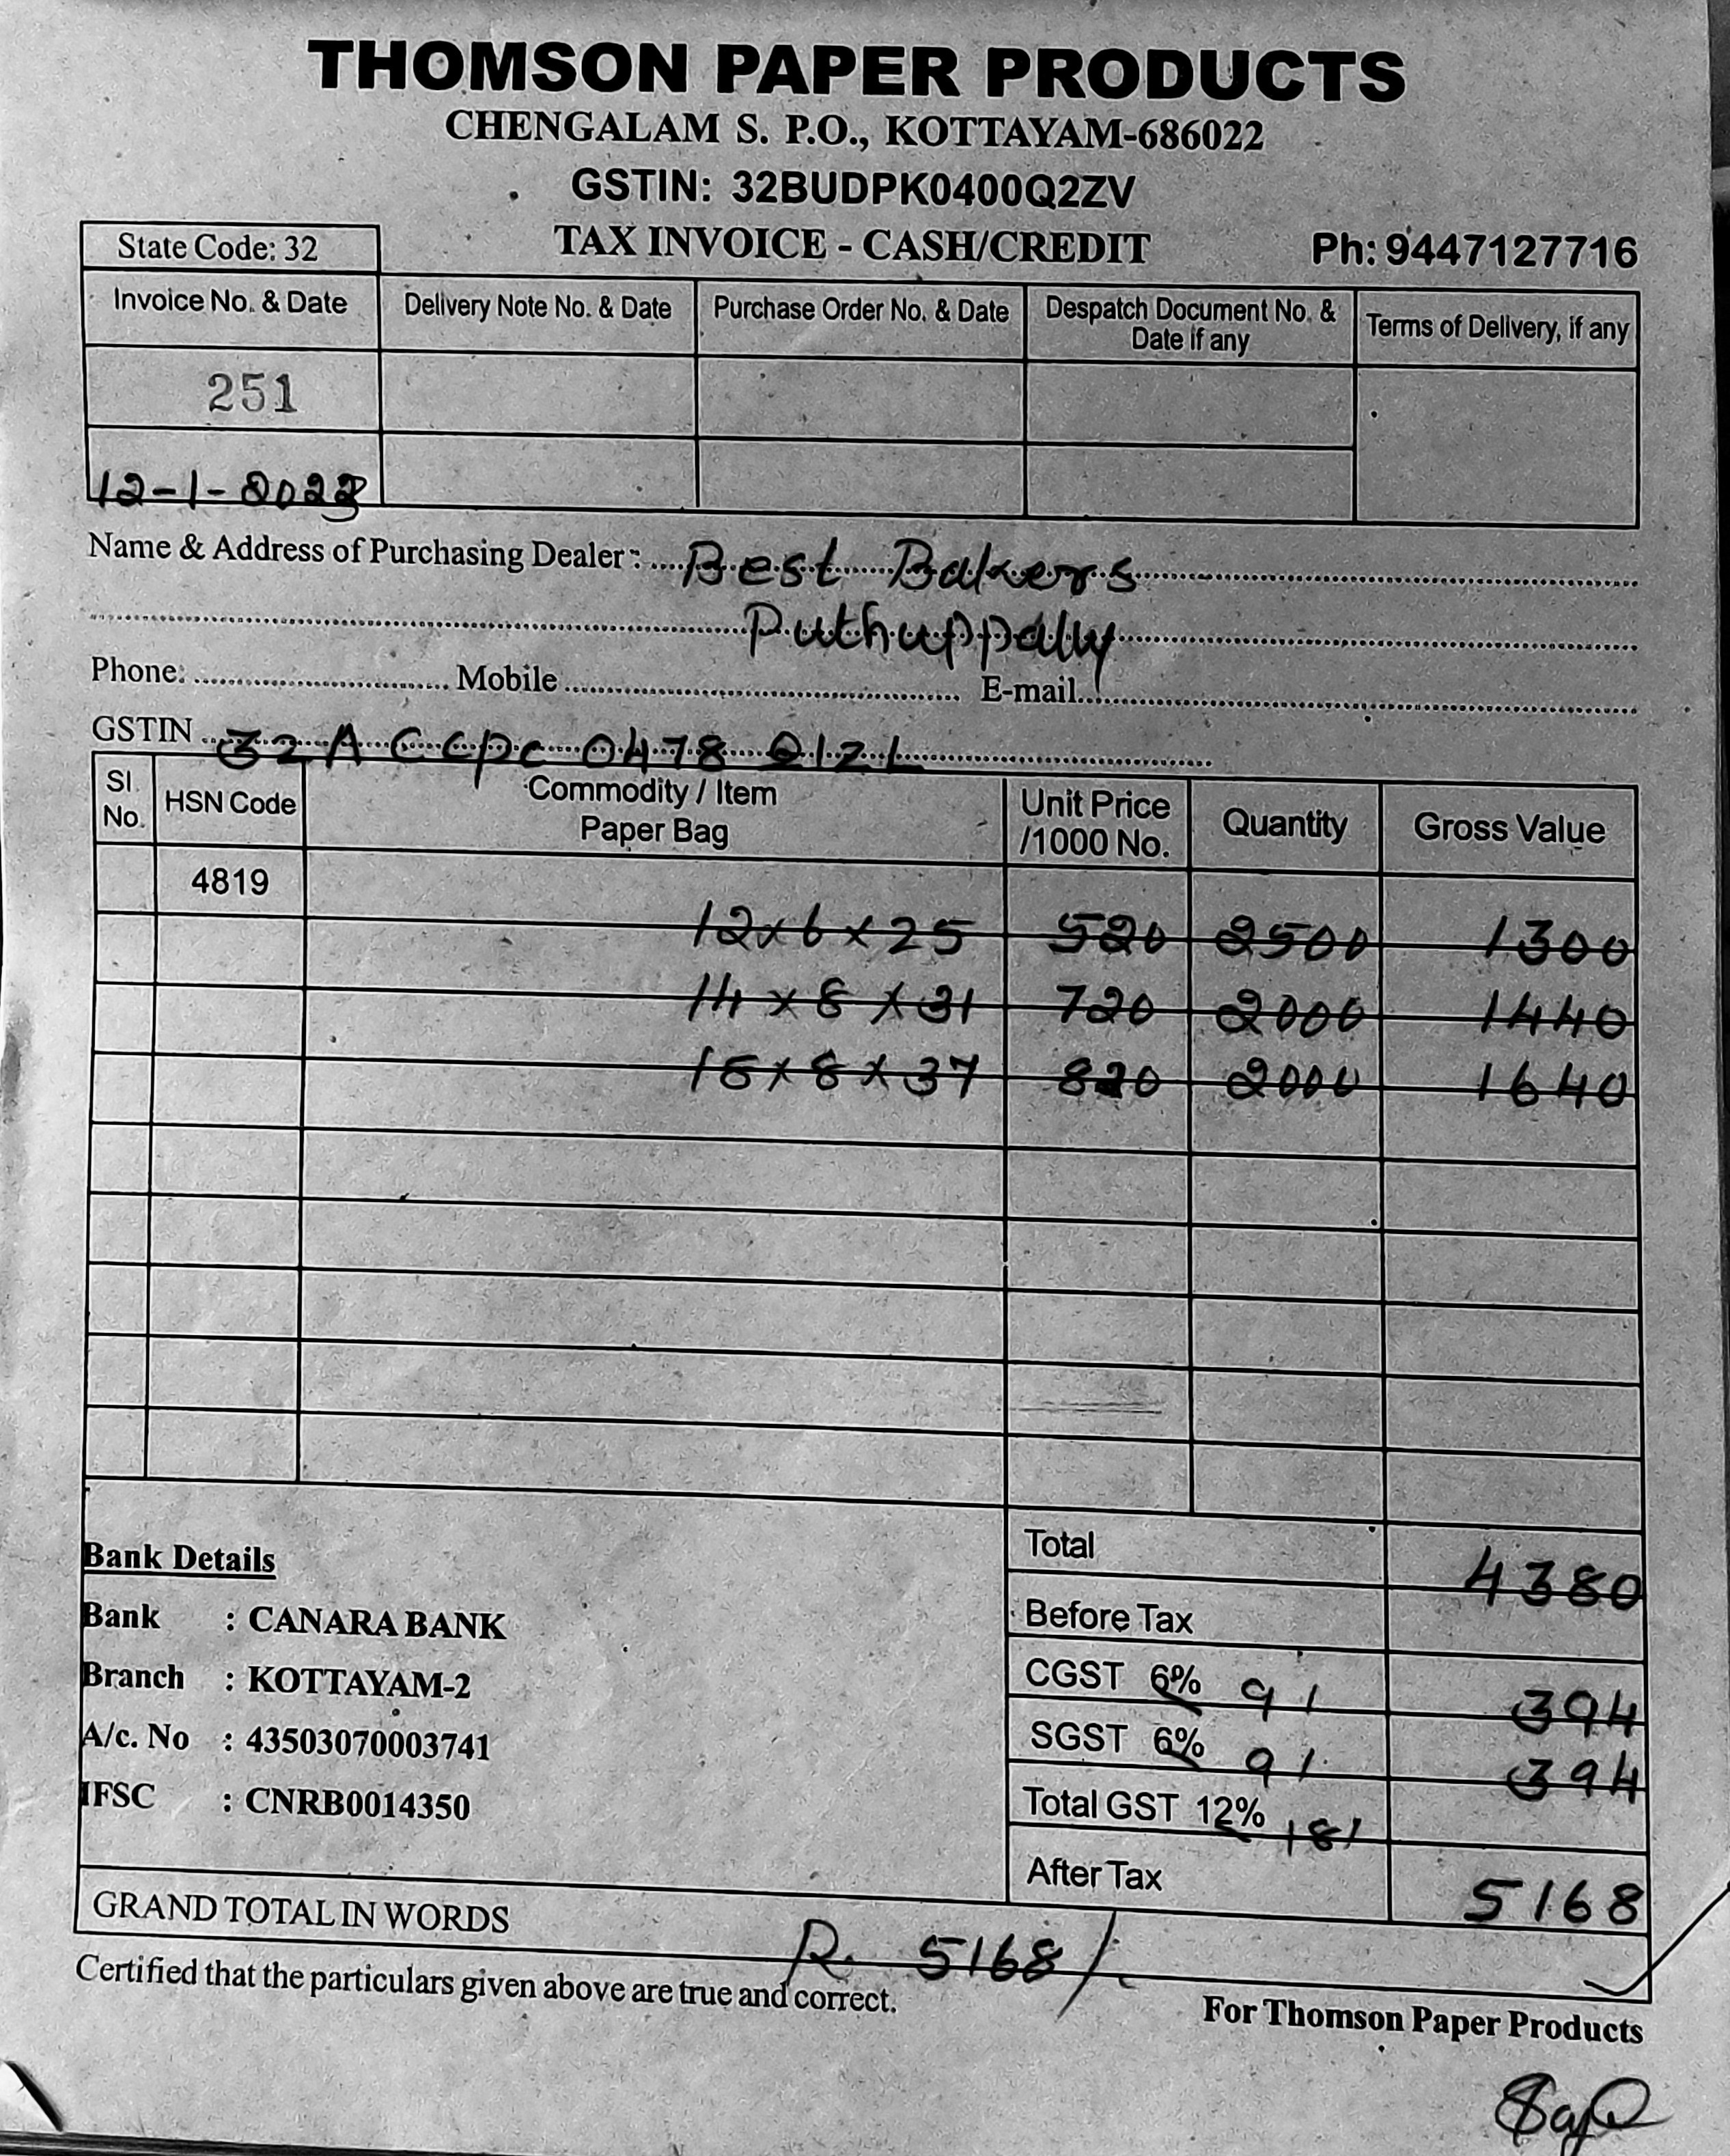 THOMSON PAPER PRODUCTS
CHENGALAM S. P.O., KOTTAYAM-686022
GSTIN: 32BUDPK0400Q2ZV
State Code: 32
TAX INVOICE - CASH/CREDIT
Ph: 9447127716
Invoice No. & Date
Delivery Note No. & Date
Purchase Order No. & Date
Despatch Document No. & Date if any
Terms of Delivery, if any
251
12-1-2023
Name & Address of Purchasing Dealer: Best Bakers
Puthuppally
Phone: Mobile E-mail
GSTIN 32ACCPC0478Q1ZL
Sl. No. HSN Code Commodity / Item Paper Bag Unit Price /1000 No. Quantity Gross Value
4819
12x6x25 520 2500 1300
14x8x31 720 2000 1440
820 2000 1640
Total 4380
Before Tax
CGST 6% 9% 394
SGST 6% 9% 394
Total GST 12% 18%
After Tax 5168
Bank Details
Bank : CANARA BANK
Branch : KOTTAYAM-2
A/c. No : 43503070003741
IFSC : CNRB0014350
GRAND TOTAL IN WORDS R. 5168/-
Certified that the particulars given above are true and correct.
For Thomson Paper Products